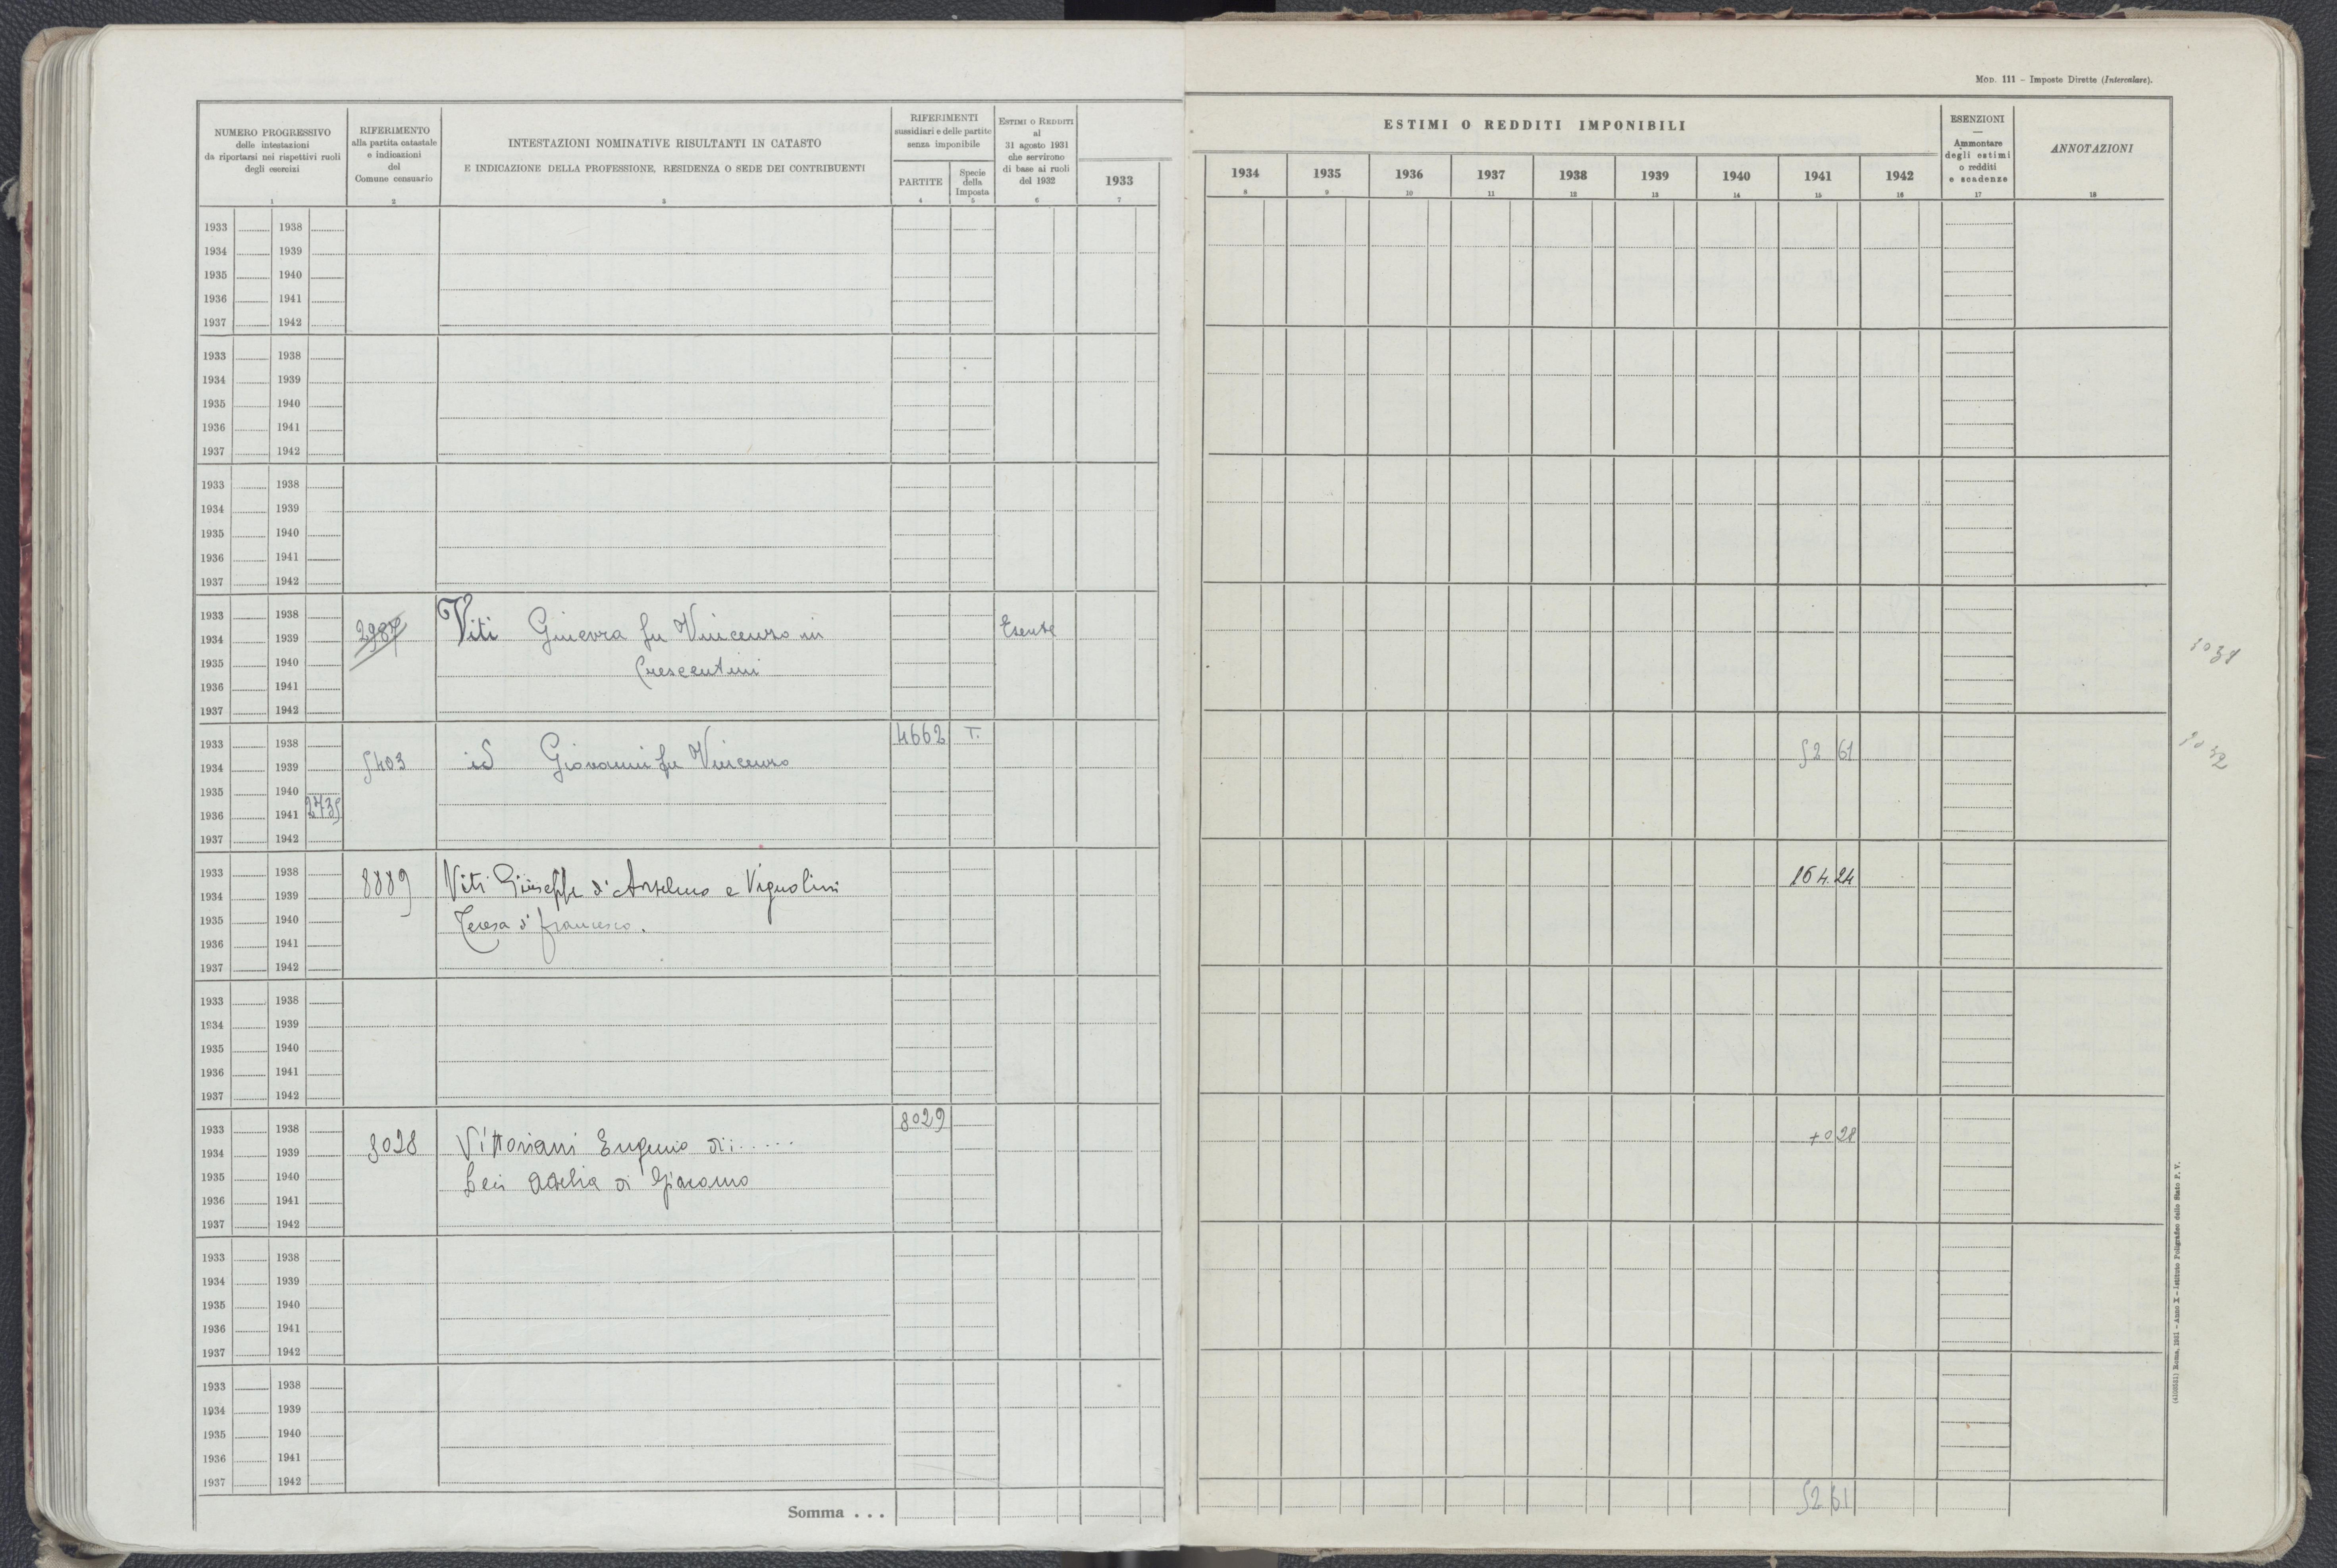 MOD. 111 – Imposte Dirette (Intercalare).
NUMERO PROGRESSIVO
delle intestazioni
da riportarsi nei rispettivi ruoli
degli esercizi
1
RIFERIMENTO
alla partita catastale
e indicazioni
del
Comune censuario
2
INTESTAZIONI NOMINATIVE RISULTANTI IN CATASTO
E INDICAZIONE DELLA PROFESSIONE, RESIDENZA O SEDE DEI CONTRIBUENTI
3
RIFERIMENTI
sussidiari e delle partite
senza imponibile
PARTITE
4
Specie
della
Imposta
5
ESTIMI O REDDITI
al
31 agosto 1931
che servirono
di base ai ruoli
del 1932
6
1933
7
ESTIMI O REDDITI IMPONIBILI
1934 1935 1936 1937 1938 1939 1940 1941 1942
8 9 10 11 12 13 14 15 16
ESENZIONI
—
Ammontare
degli estimi
o redditi
e scadenze
17
ANNOTAZIONI
18
1933 1938
1934 1939
1935 1940
1936 1941
1937 1942
1933 1938
1934 1939
1935 1940
1936 1941
1937 1942
1933 1938
1934 1939
1935 1940
1936 1941
1937 1942
1933 1938
1934 1939 2987 Viti Ginevra fu Vincenzo in Esente
1935 1940 Crescentini
1936 1941
1937 1942
1933 1938 4662 T.
1934 1939 5403 id Giovanni fu Vincenzo 52 61
1935 1940
1936 1941 2735
1937 1942
1933 1938
1934 1939 8889 Viti Giuseppe d'Anselmo e Vignolini 164.24
1935 1940 Teresa d' Francesco.
1936 1941
1937 1942
1933 1938
1934 1939
1935 1940
1936 1941
1937 1942
1933 1938 8029
1934 1939 8028 Vittoriani Eugenio di ...... +0 28
1935 1940 Adelia di Giacomo
1936 1941
1937 1942
1933 1938
1934 1939
1935 1940
1936 1941
1937 1942
1933 1938
1934 1939
1935 1940
1936 1941
1937 1942
Somma . . . 52 61